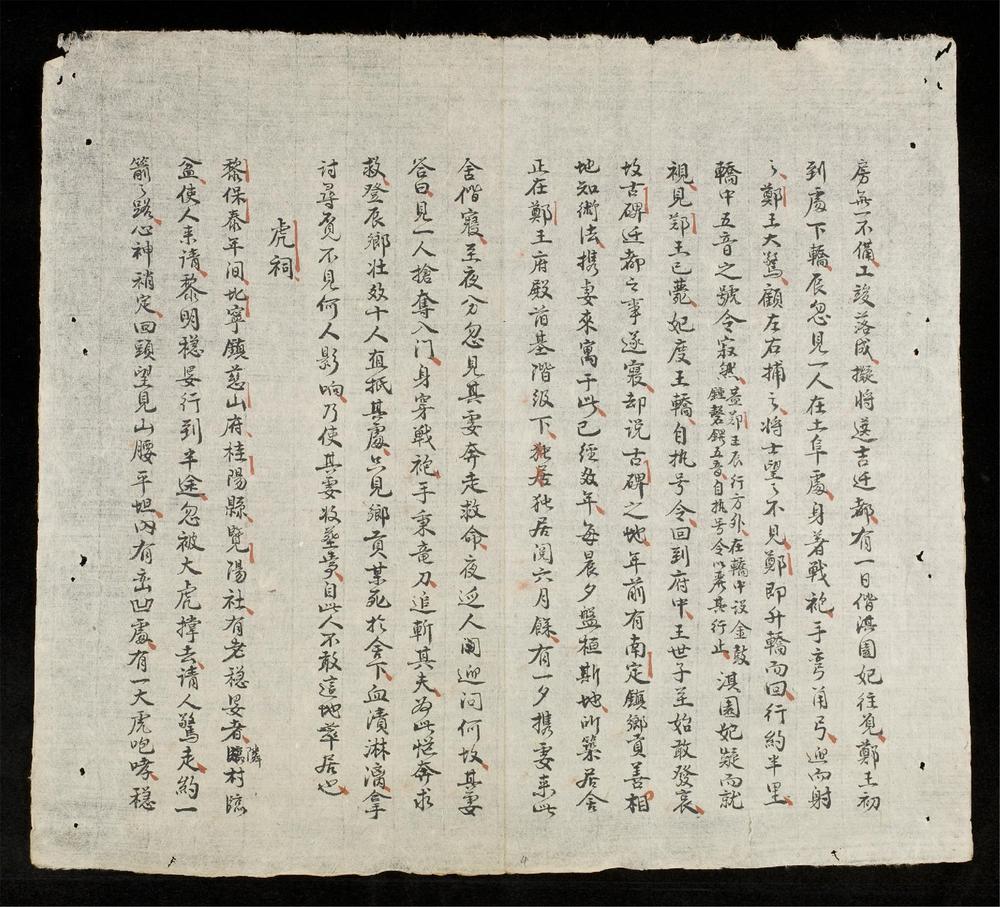 房無一不備工竣落成擬將選吉迁都有一日偕淇園妃往覓鄭王初
到處下轎辰忽見一人在土阜處身著戰袍手弯角弓迎面射
之鄭王大驚顧左右捕之將士望之不見鄭即升轎而回行約半里
轎中五音之號令寂然盖鄭王辰行方外在轎中設金鼓鍾磬鐸五音自执号令以爲其行止淇園妃疑而就
視見鄭王已薨妃度王轎自执号令回到府中王世子至始敢發哀
故古碑迁都之事遂寢却说古碑之地年前有南定鎮鄉貢善相
地知術法携妻來寓于此已經数年每晨夕盤桓斯地所築居舍
正在鄭王府殿前基階級下独居閱六月餘有一夕携妻来此
舍偕寢至夜分忽見其妻奔走救命夜近人闻迎问何故其妻
答曰見一人搶奪入门身穿戦袍手秉竜刀追斬其夫為此慌奔求
救登辰鄉壮效十人直抵其處只見鄉貢某死於舍下血漬淋漓拿
讨尋覓不見何人影响乃使其妻收塟焉自此人不敢這地華居也
虎祠
黎保泰年间北寧鎮慈山府桂陽縣覽陽社有老稳晏者隣村臨
盆使人来请黎明稳晏行到半途忽被大虎撑去请人驚走約一
箭之路心神稍定回頭望見山腰平坦內有峦凹處有一大虎咆哮稳